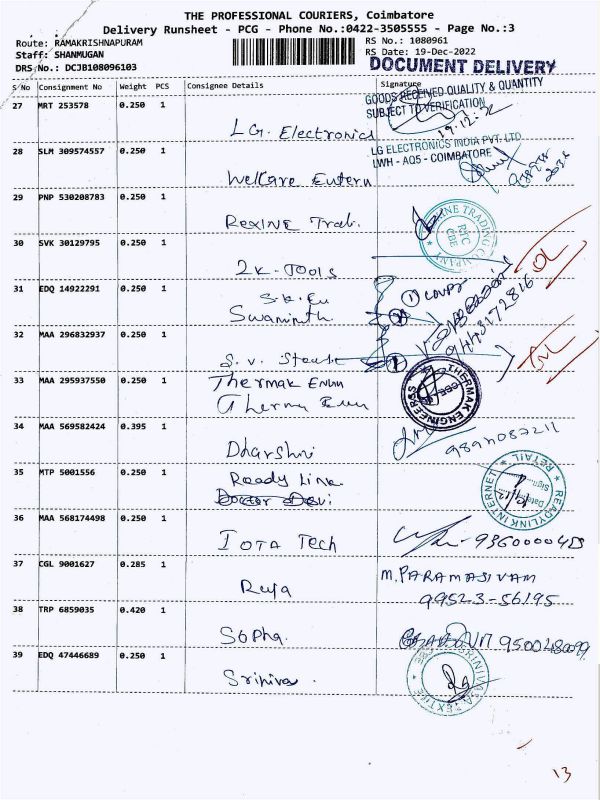 THE PROFESSIONAL COURIERS, Coimbatore
Delivery Runsheet - PCG - Phone No.:0422-3505555 - Page No.:3
Route: RAMAKRISHNAPURAM
RS No.: 1080961
Staff: SHANMUGAN
RS Date: 19-Dec-2022
DRS No.: DCJB108096103
DOCUMENT DELIVERY
S/No Consignment No Weight PCS Consignee Details Signature
GOODS RECEIVED QUALITY & QUANTITY
SUBJECT TO VERIFICATION
27 MRT 253578 0.250 1
LG. Electronics
19.12.22
LG ELECTRONICS INDIA PVT. LTD
LWH - AQ5 - COIMBATORE
28 SLM 309574557 0.250 1
Welcare
29 PNP 530208783 0.250 1
Rexine Trad.
TRADING COMPANY
RTC
CBE
30 SVK 30129795 0.250 1
2K-Tools
31 EDQ 14922291 0.250 1
Swaminth
9443172816
32 MAA 296832937 0.250 1
S.V.
33 MAA 295937550 0.250 1
Thermak
THERMAK ENGINEERS
CBE
34 MAA 569582424 0.395 1
Dharshni
35 MTP 5001556 0.250 1
Ready Link
READYLINK INTERNET
RETAIL
Date
Sign
36 MAA 568174498 0.250 1
IOTA Tech
37 CGL 9001627 0.285 1
Ruja
M. PARAMASIVAM
99523-56195
38 TRP 6859035 0.420 1
Sopha.
39 EDQ 47446689 0.250 1
Sriniva.
13